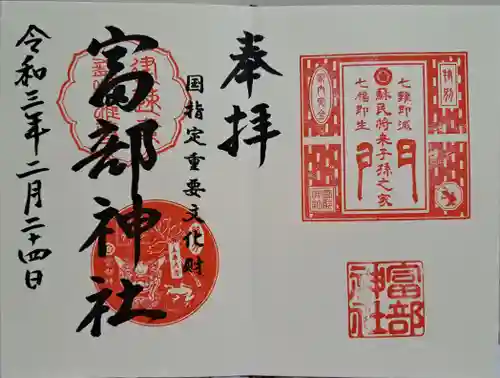 奉拝
国指定重要文化財
富部神社
令和三年二月二十四日
特別
七難即滅
蘇民将来子孫之家門
七福即生
富部
神社